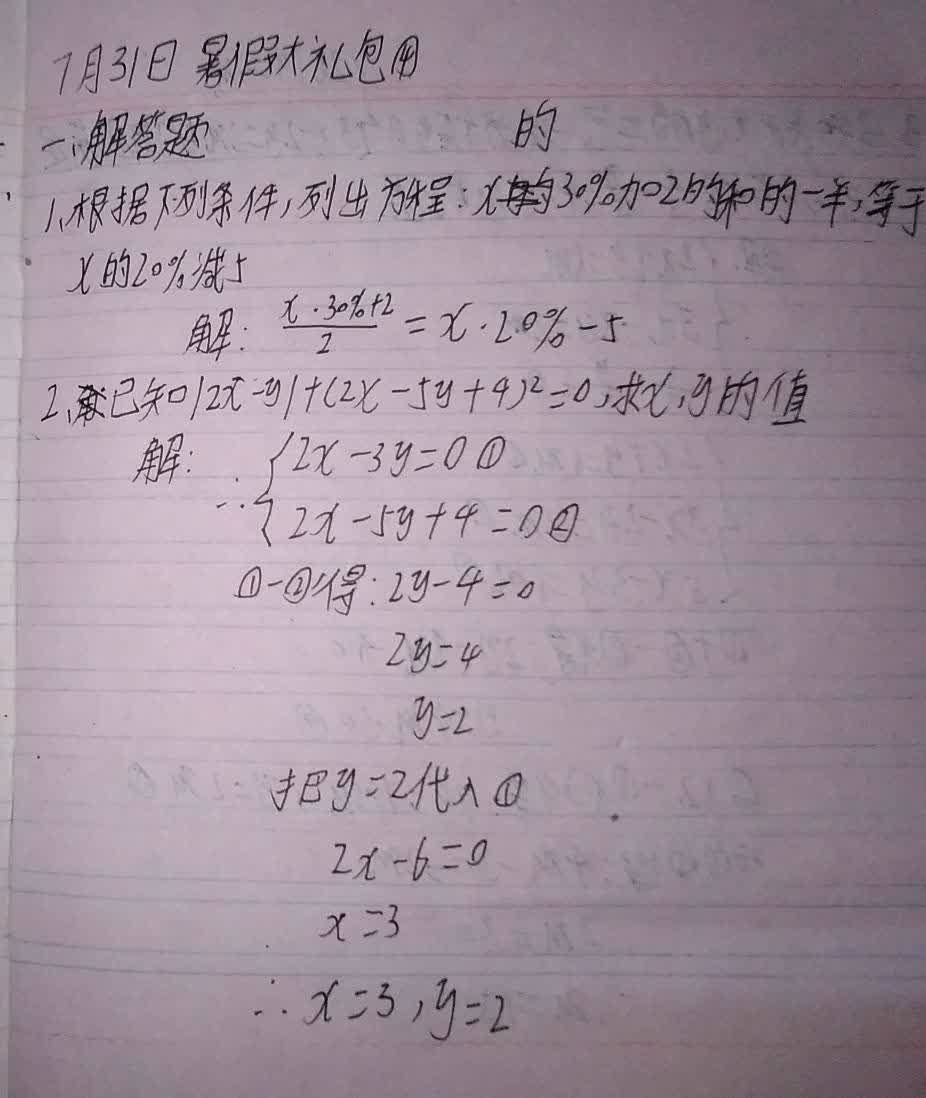 7月31日 暑假大礼包④
一、解答题
1、根据下列条件,列出方程:x的30%加2的和的一半,等于
x的20%减5
解: (x·30%+2)/2 = x·20%-5
2、已知|2x-y|+(2x-5y+4)²=0,求x,y的值
解: ∵{2x-3y=0①
{2x-5y+4=0②
①-②得:2y-4=0
2y=4
y=2
把y=2代入①
2x-6=0
x=3
∴x=3,y=2